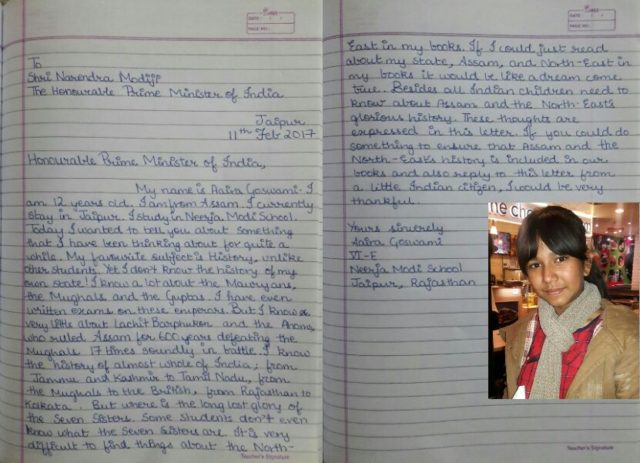 DATE: / /
PAGE NO.:
To
Shri Narendra Modiji
The Honourable Prime Minister of India
Jaipur
11th Feb 2017
Honourable Prime Minister of India,
My name is Aaira Goswami. I
am 12 years old. I am from Assam. I currently
stay in Jaipur. I study in Neerja Modi School.
Today I wanted to tell you about something
that I have been thinking about for quite a
while. My favourite subject is History, unlike
other students. Yet I don't know the history of my
own state! I know a lot about the Mauryans,
the Mughals and the Guptas. I have even
written exams on these emperors. But I know
very little about Lachit Barphukon and the Ahoms,
who ruled Assam for 600 years defeating the
Mughals 17 times soundly in battle. I know
the history of almost whole of India; from
Jammu and Kashmir to Tamil Nadu, from
the Mughals to the British, from Rajasthan to
Kolkata. But where is the long lost glory of
the Seven Sisters. Some students don't even
know what the Seven Sisters are. It is very
difficult to find things about the North-
Teacher's Signature
DATE: / /
PAGE NO.:
East in my books. If I could just read
about my state, Assam, and North-East in
my books it would be like a dream come
true. Besides all Indian children need to
know about Assam and the North-East's
glorious history. These thoughts are
expressed in this letter. If you could do
something to ensure that Assam and the
North-East's history is included in our
books and also reply to this letter from
a little Indian citizen, I would be very
thankful.
Yours sincerely
Aaira Goswami
VI-E
Neerja Modi School
Jaipur, Rajasthan
Teacher's Signature